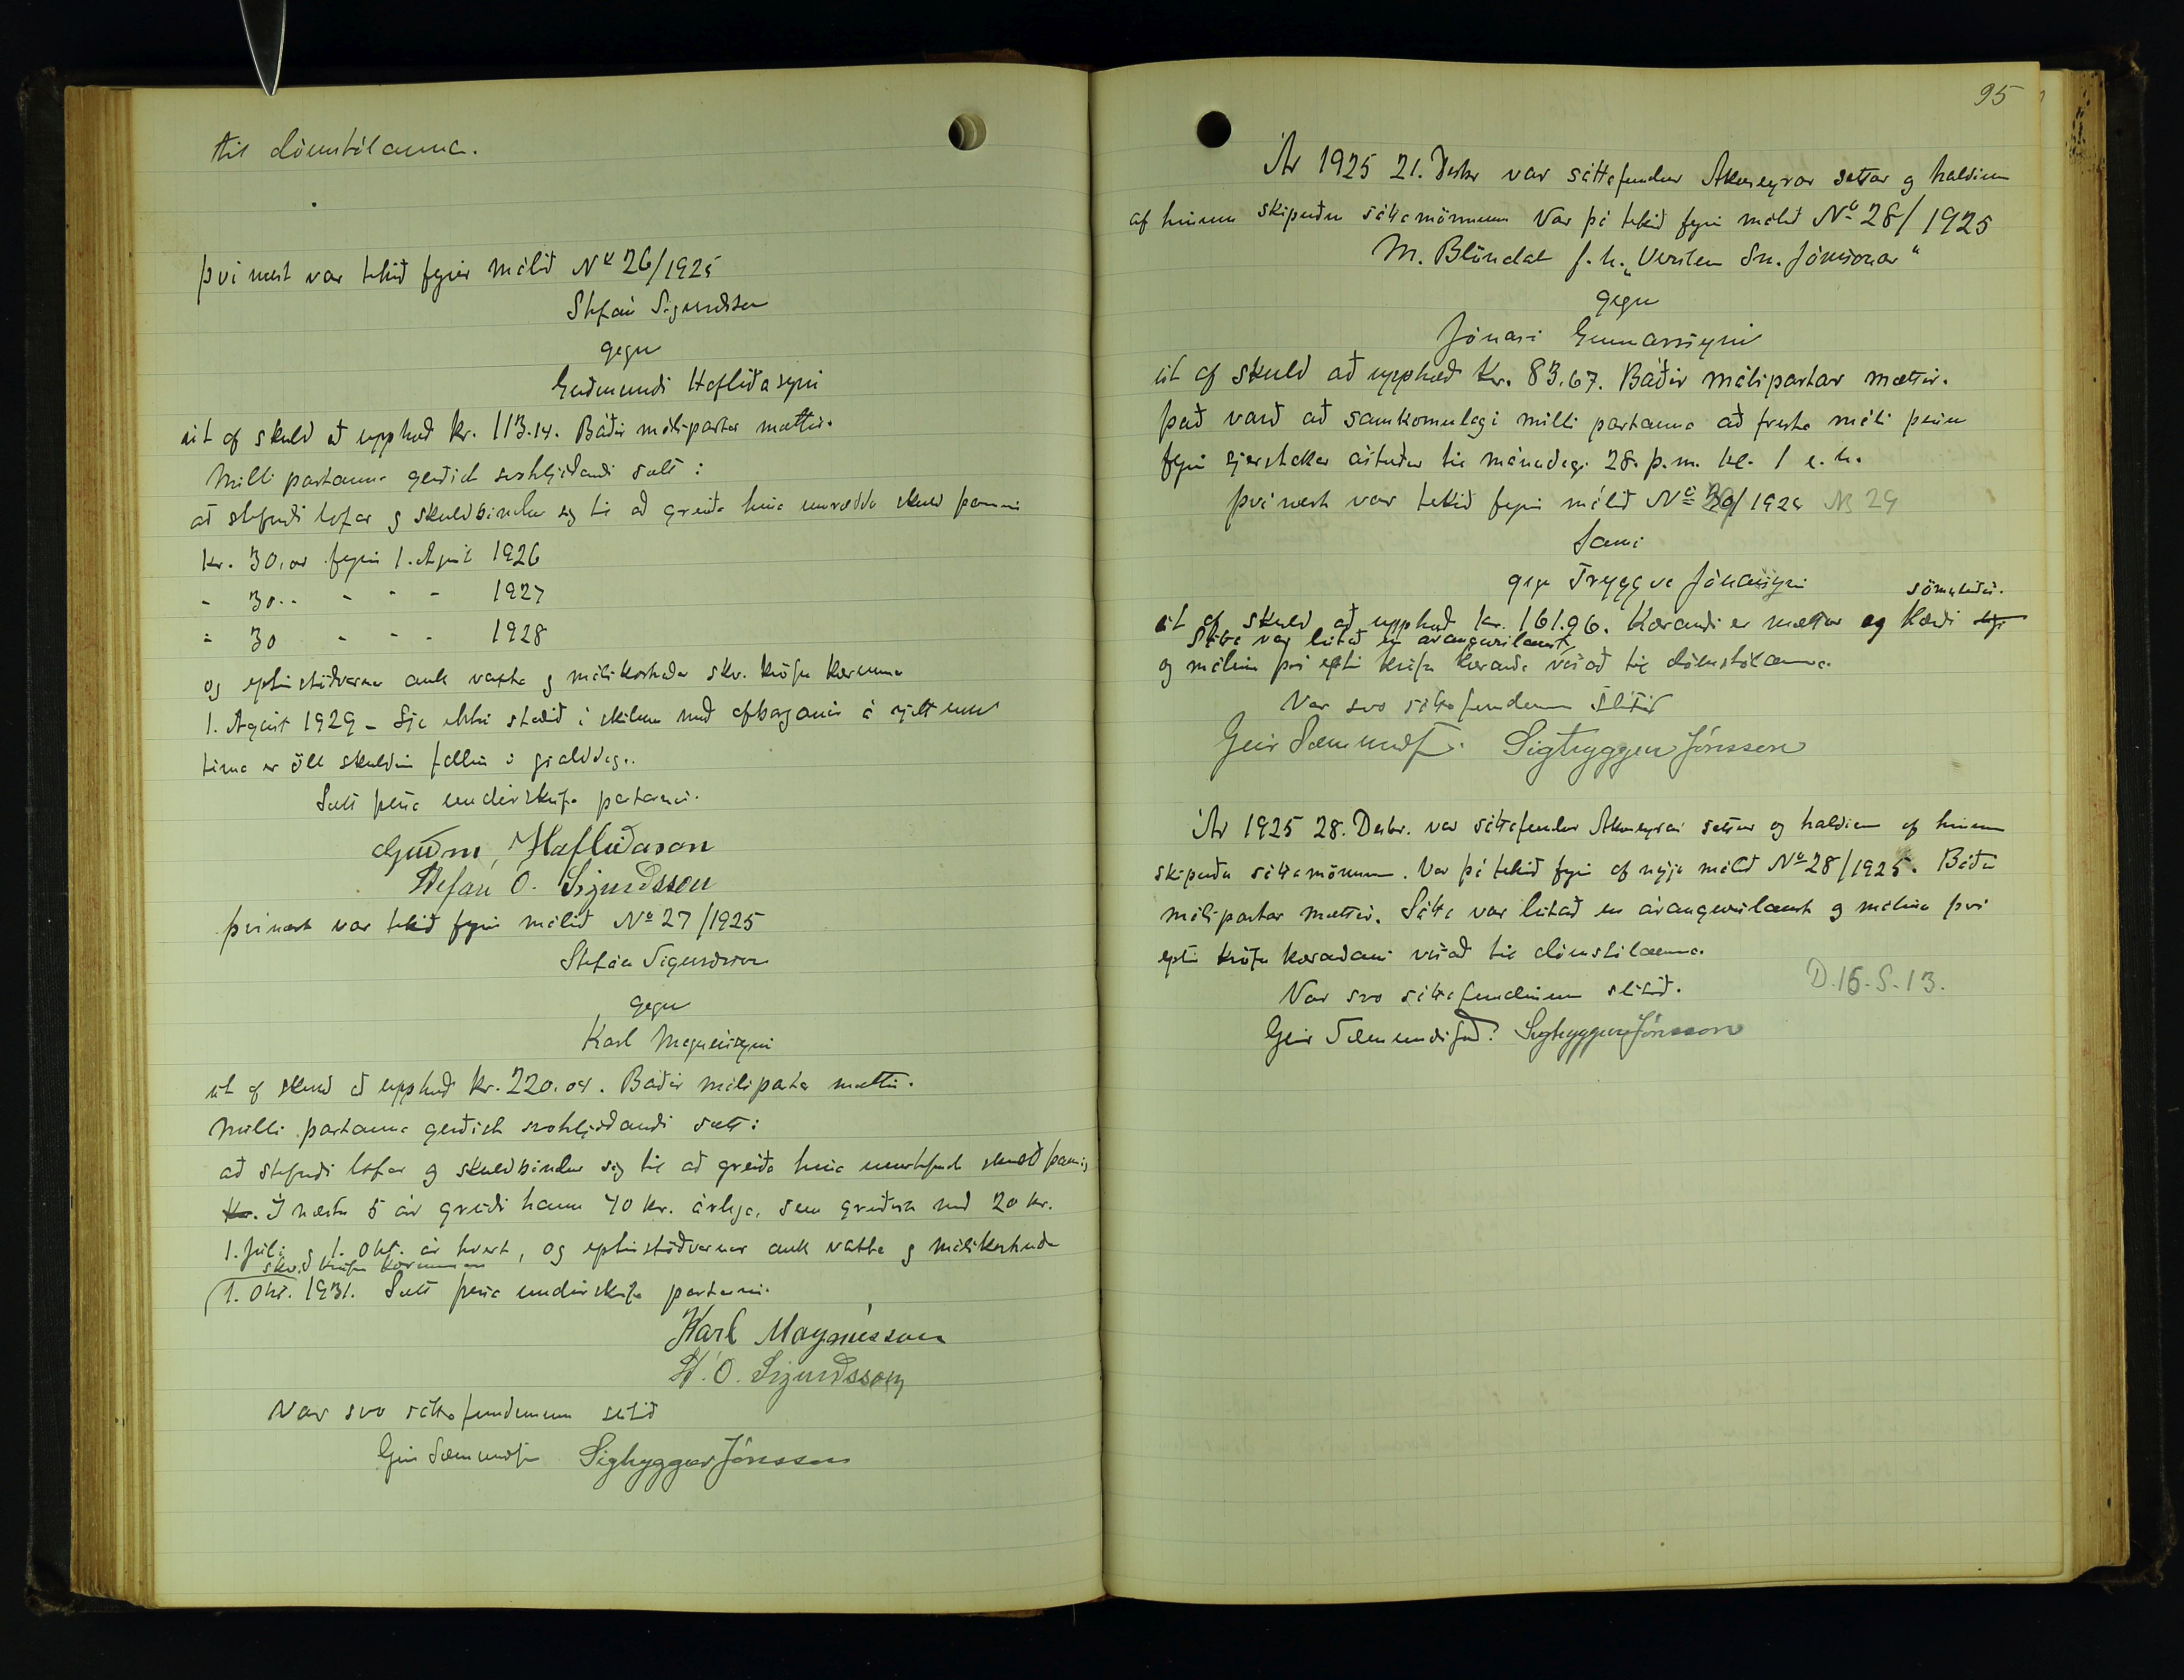 til dómstólanna.
því næst var tekið fyrir málið No 26/1925
Stefán Sigurðsson
gegn
Guðmundi Hafliðasyni
út af skuld að upphæð kr. 113.14. Báðir málspartar mættir.
Milli partanna gerðist svohljóðandi sætt:
að stefndi lofar og skuldbindur sig til að greiða hina umræddu skuld þannig
kr. 30,00 fyrir 1. Apríl 1926
- 30.. - - - 1927
- 30 - - - 1928
og eptirstöðvarnar auk vaxta og málskostnaðar skv. kröfu kærunnar
1. Ágúst 1929 - Sje ekki staðið í skilum með afborganir á rjettum
tíma er öll skuldin fallin í gjalddaga.
Sætt þessa undirskrifa partarnir.
Guðm, Hafliðason
Stefán Ó. Sigurðsson
því næst var tekið fyrir málið No 27/1925
Stefán Sigurðsson
gegn
Karl Magnússyni
út af skuld að upphæð kr. 220.04. Báðir málspartar mættir.
Milli partanna gerðist svohljóðandi sætt:
að stefndi lofar og skuldbindur sig til að greiða hina umstefndu skuld þannig
Kr. Í næstu 5 ár greiði hann 40 kr. árlega, sem greiðist með 20 kr.
1. Júlí og 1. Okt. ár hvert, og eptirstöðvarnar auk vaxta og málskostnaðar
skv. kröfu kærunnar
1. Okt. 1931. Sætt þessa undirskrifa partarnir.
Karl Magnússon
St. Ó. Sigurðsson
Var svo sáttafundinum slitið
Geir Sæmundss Sigtryggur Jónsson
95
Ár 1925 21. Desbr var sáttafundur Akureyrar settur og haldinn
af hinum skipuðu sáttamönnum Var þá tekið fyrir málið No 28/1925
M. Blöndal f.h. „Verslun Sn. Jónssonar"
gegn
Jónasi Gunnarssyni
út af skuld að upphæð kr. 83.67. Báðir málspartar mættir.
Það varð að samkomulagi milli partanna að fresta máli þessu
fyrir sjerstakar ástæður til mánudags 28. þ.m. kl. 1 e.h.
því næst var tekið fyrir málið No 30/1925 No 29
Sami
gegn Tryggva Jónassyni
sömuleiðis.
út af skuld að upphæð kr. 161.96. Kærandi er mættur og kærði
Sátta var leitað en árangurslaust
og málinu því eptir kröfu kæranda vísað til dómstólanna.
Var svo sáttafundinum slitið
Geir Sæmundss. Sigtryggur Jónsson
Ár 1925 28. Desbr. var sáttafundur Akureyrar settur og haldinn af hinum
skipuðu sáttamönnum. Var þá tekið fyrir af nýju málið No 28/1925. Báðir
málspartar mættir. Sátta var leitað en árangurslaust og málinu því
eptir kröfu kærandans vísað til dómstólanna.
D.16.S.13.
Var svo sáttafundinum slitið.
Geir Sæmundsson. Sigtryggur Jónsson